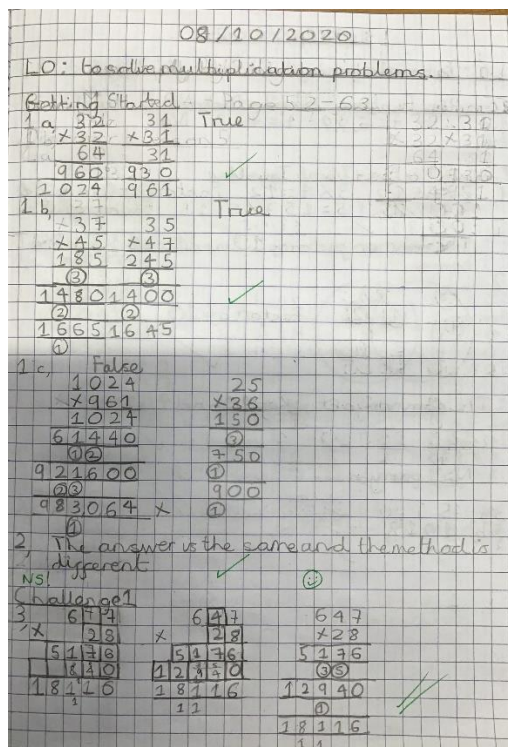 08/10/2020
LO: to solve multiplication problems.
Getting Started Page 52-63
1a, 32 31 True
×32 ×31
64 31
960 930
1024 961
1b, True
37 35
×45 ×47
185 245
③ ③
1480 1400
② ②
1665 1645
①
1c, False
1024 25
×961 ×36
1024 150
61440 ③
①② 750
921600 ①
②③ 900
983064 × ①
①
2, The answer is the same and the method is
different
NS!
Challenge 1
3, 677 647 647
× 28 × 28 ×28
5176 5176 5176
840 12940 ③⑤
18116 18116 12940
1 11 ①
18116
11